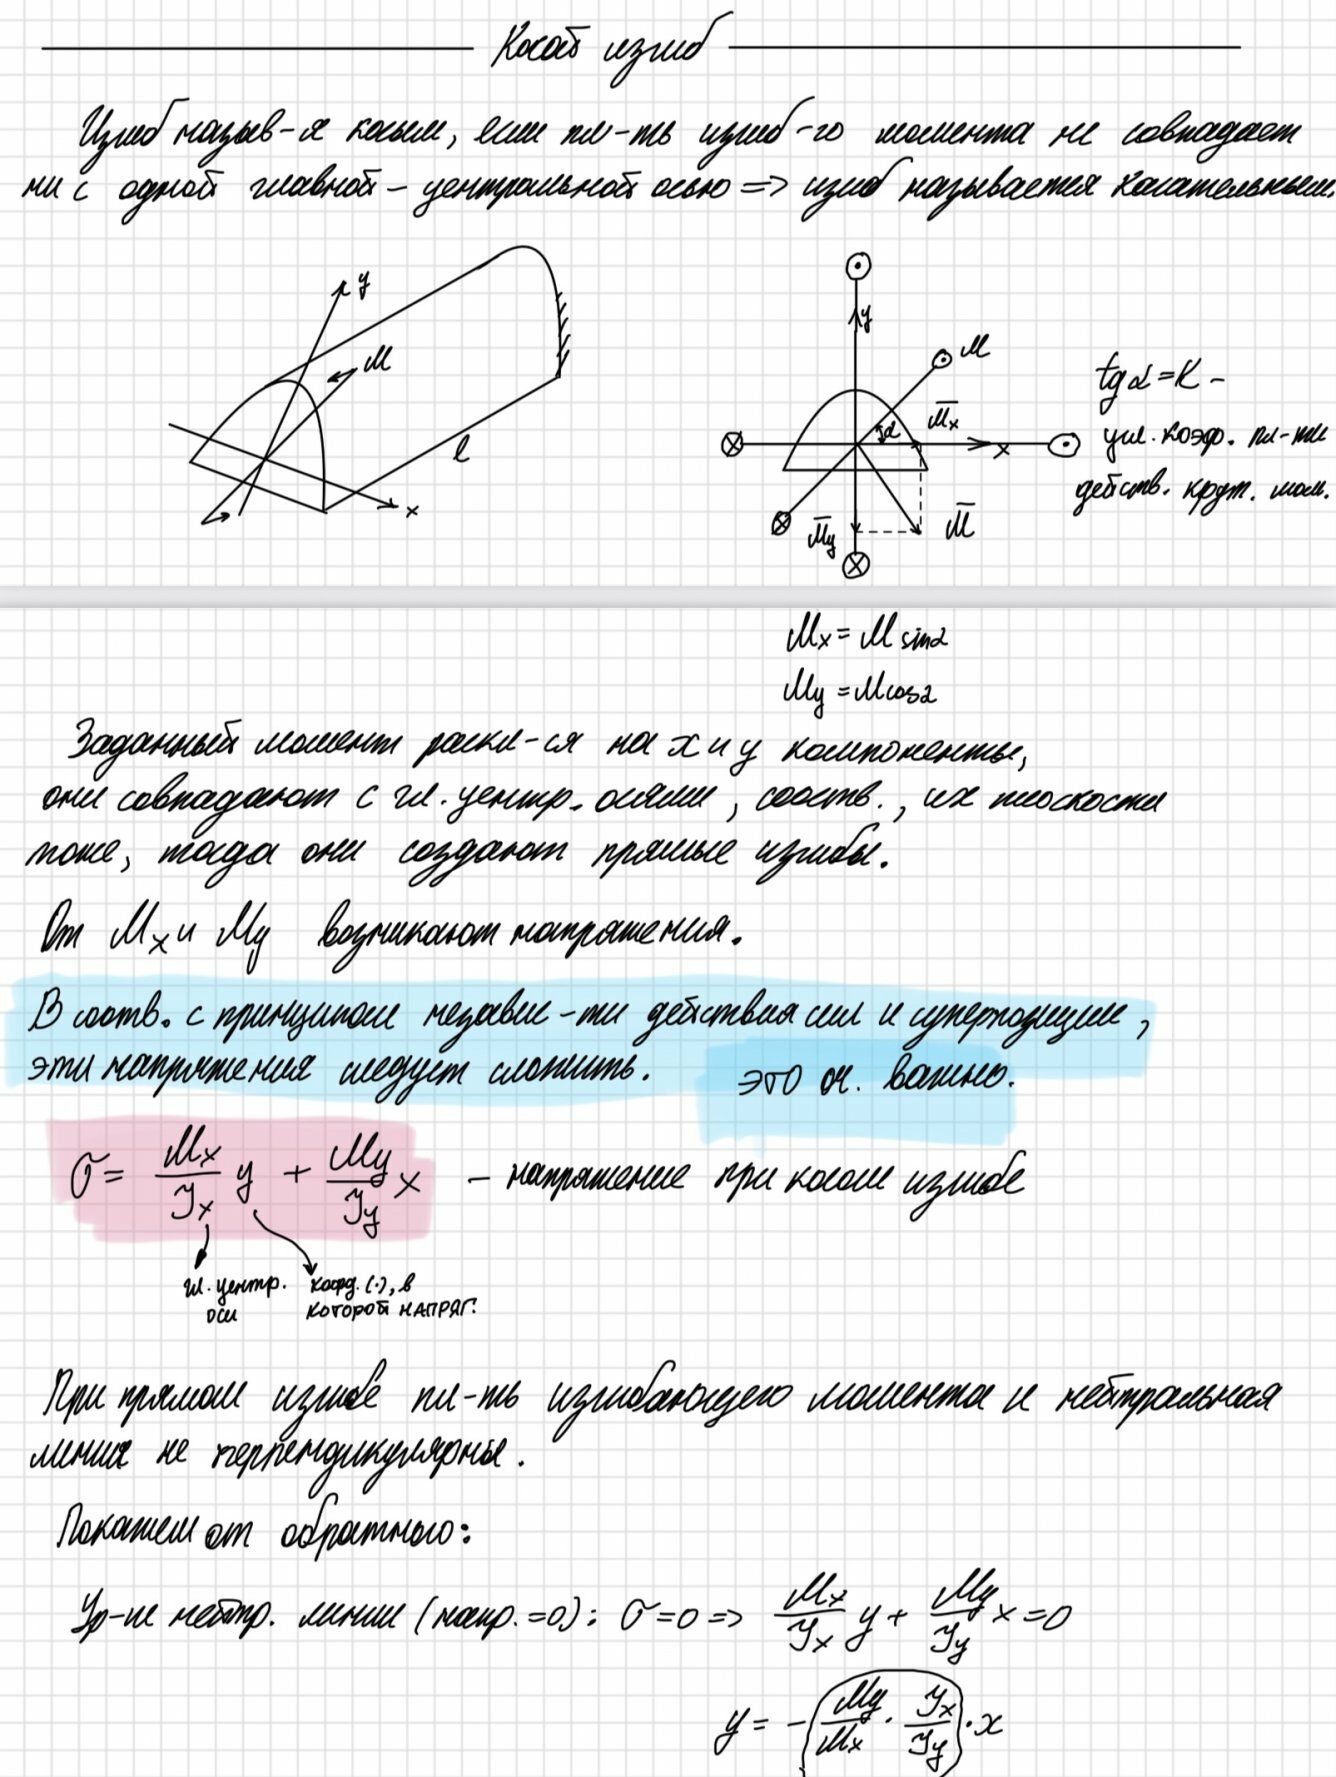 Косой изгиб
Изгиб назыв-я косым, если пл-ть изгиб-го момента не совпадает
ни с одной главной - центральной осью => изгиб называется касательным.
y
M
l
x
y
M
α
M̅x
x
M̅y
M̅
tgα = K -
угл. коэф. пл-ти
действ. крут. мом.
Mx = M sinα
My = M cosα
Заданный момент раскл-ся на x и y компоненты,
они совпадают с гл. центр. осями, соотв., их плоскости
тоже, тогда они создают прямые изгибы.
От Mx и My возникают напряжения.
В соотв. с принципом независ-ти действия сил и суперпозиции,
эти напряжения следует сложить. это оч. важно.
σ = Mx/Jx y + My/Jy x - напряжение при косом изгибе
гл. центр. оси
коорд. (·), в которой напряг.
При прямом изгибе пл-ть изгибающего момента и нейтральная
линия не перпендикулярны.
Покажем от обратного:
Ур-ие нейтр. линии (напр. = 0): σ = 0 => Mx/Jx y + My/Jy x = 0
y = -(My/Mx · Jx/Jy) · x